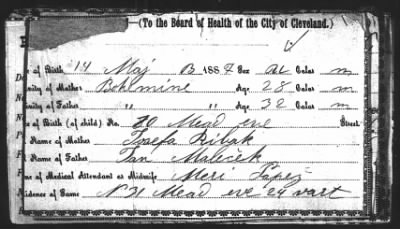 —(To the Board of Health of the City of Cleveland.)
e of Birth 14 Maj 188 Sex Color m
ity of Mother Bohemine Age 28 Color m
ity of Father " " Age 32 Color m
e of Birth (of child) No. 20 Mead eve Street
Name of Mother Josefa Ribak
Name of Father Jan Maleček
e of Medical Attendant or Midwife Meri
idence of Same N 21 Mead eve 24 vart